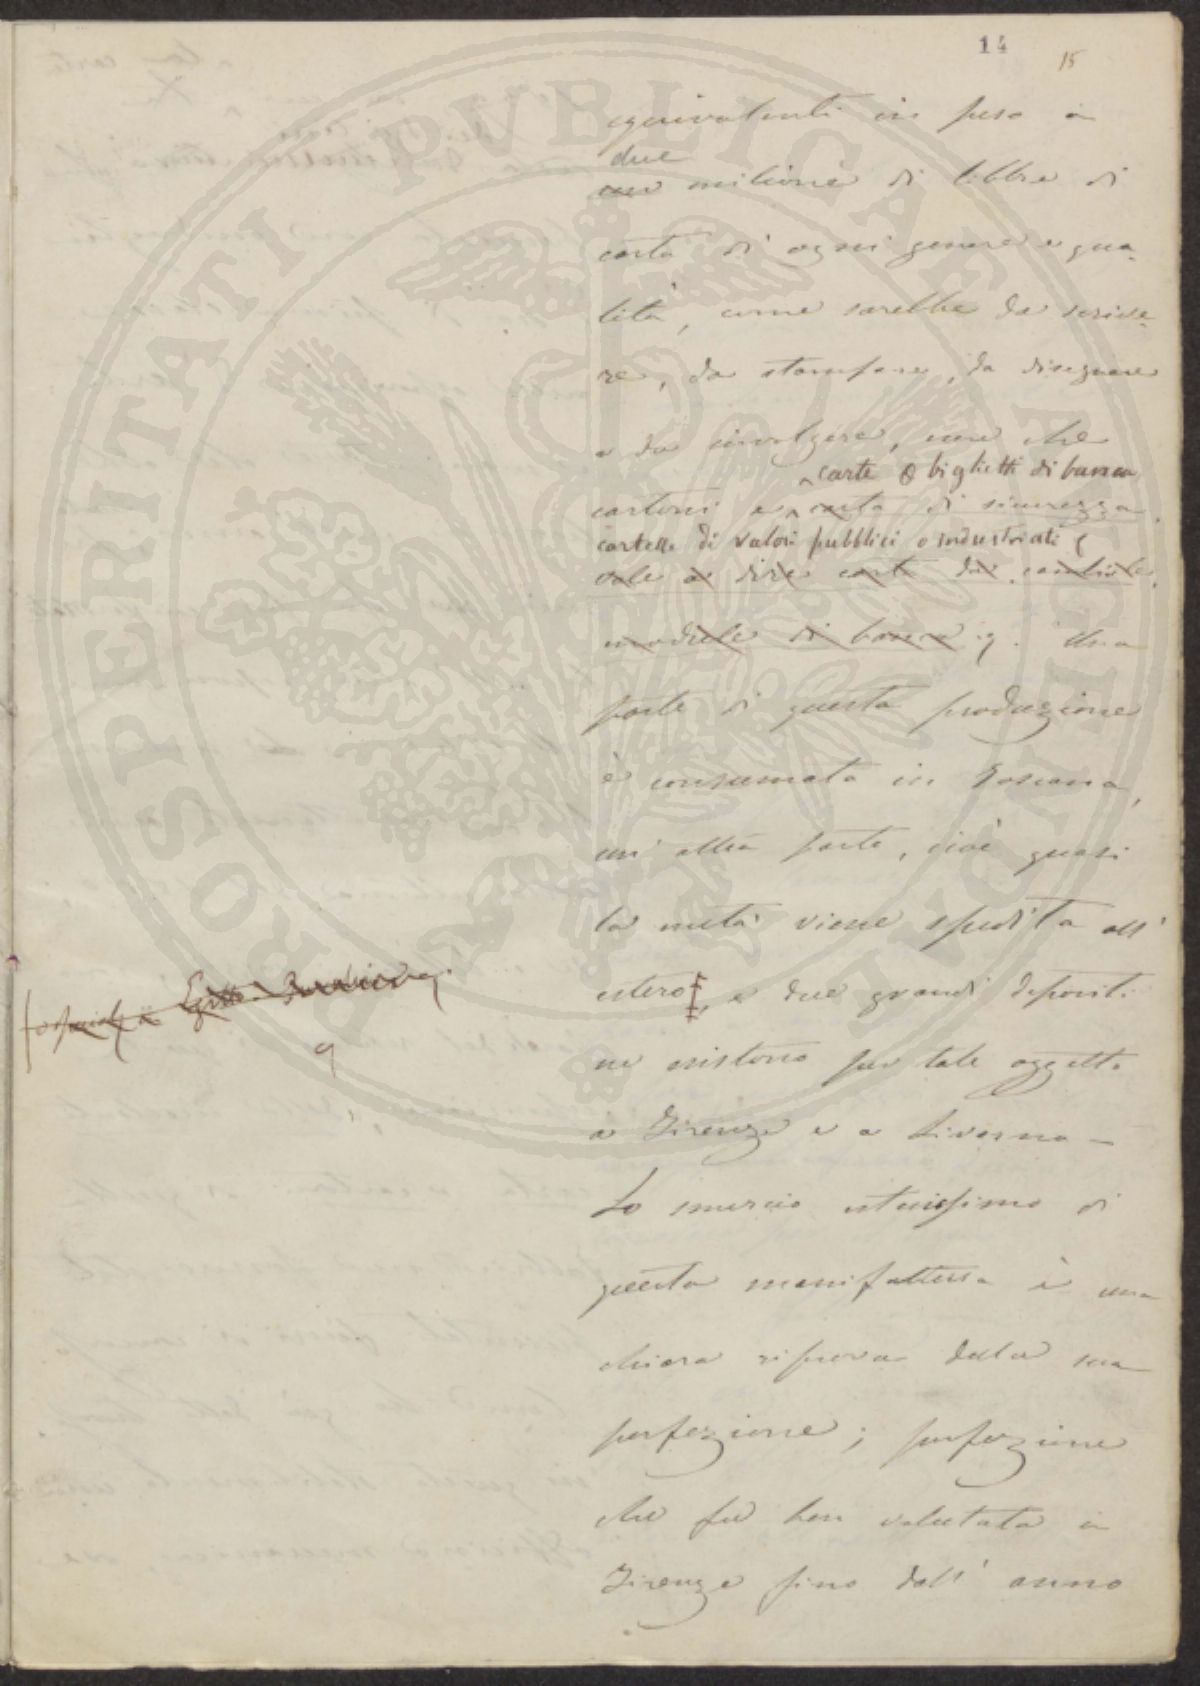 14
15
equivalenti in peso a
due
un milione di libbre di
carta di ogni genere e qua-
lità, come sarebbe da scrive-
re, da stampare, da disegnare
e da involgere, non che
carte o biglietti di banca
cartoni e carta di sicurezza,
cartelle di valori pubblici o industriali
vale a dire carte da cambiale,
module di banca. Una
parte di questa produzione
è consumata in Toscana,
un' altra parte, cioè quasi
la metà viene spedita all'
estero, e due grandi depositi
ne esistono per tale oggetto
a Firenze e a Livorno –
Lo smercio estesissimo di
questa manifattura è una
chiara riprova della sua
perfezione; perfezione
che fu ben valutata in
Firenze fino dall' anno
Egitto
PROSPERITATI PVBLICAE AVGENDAE